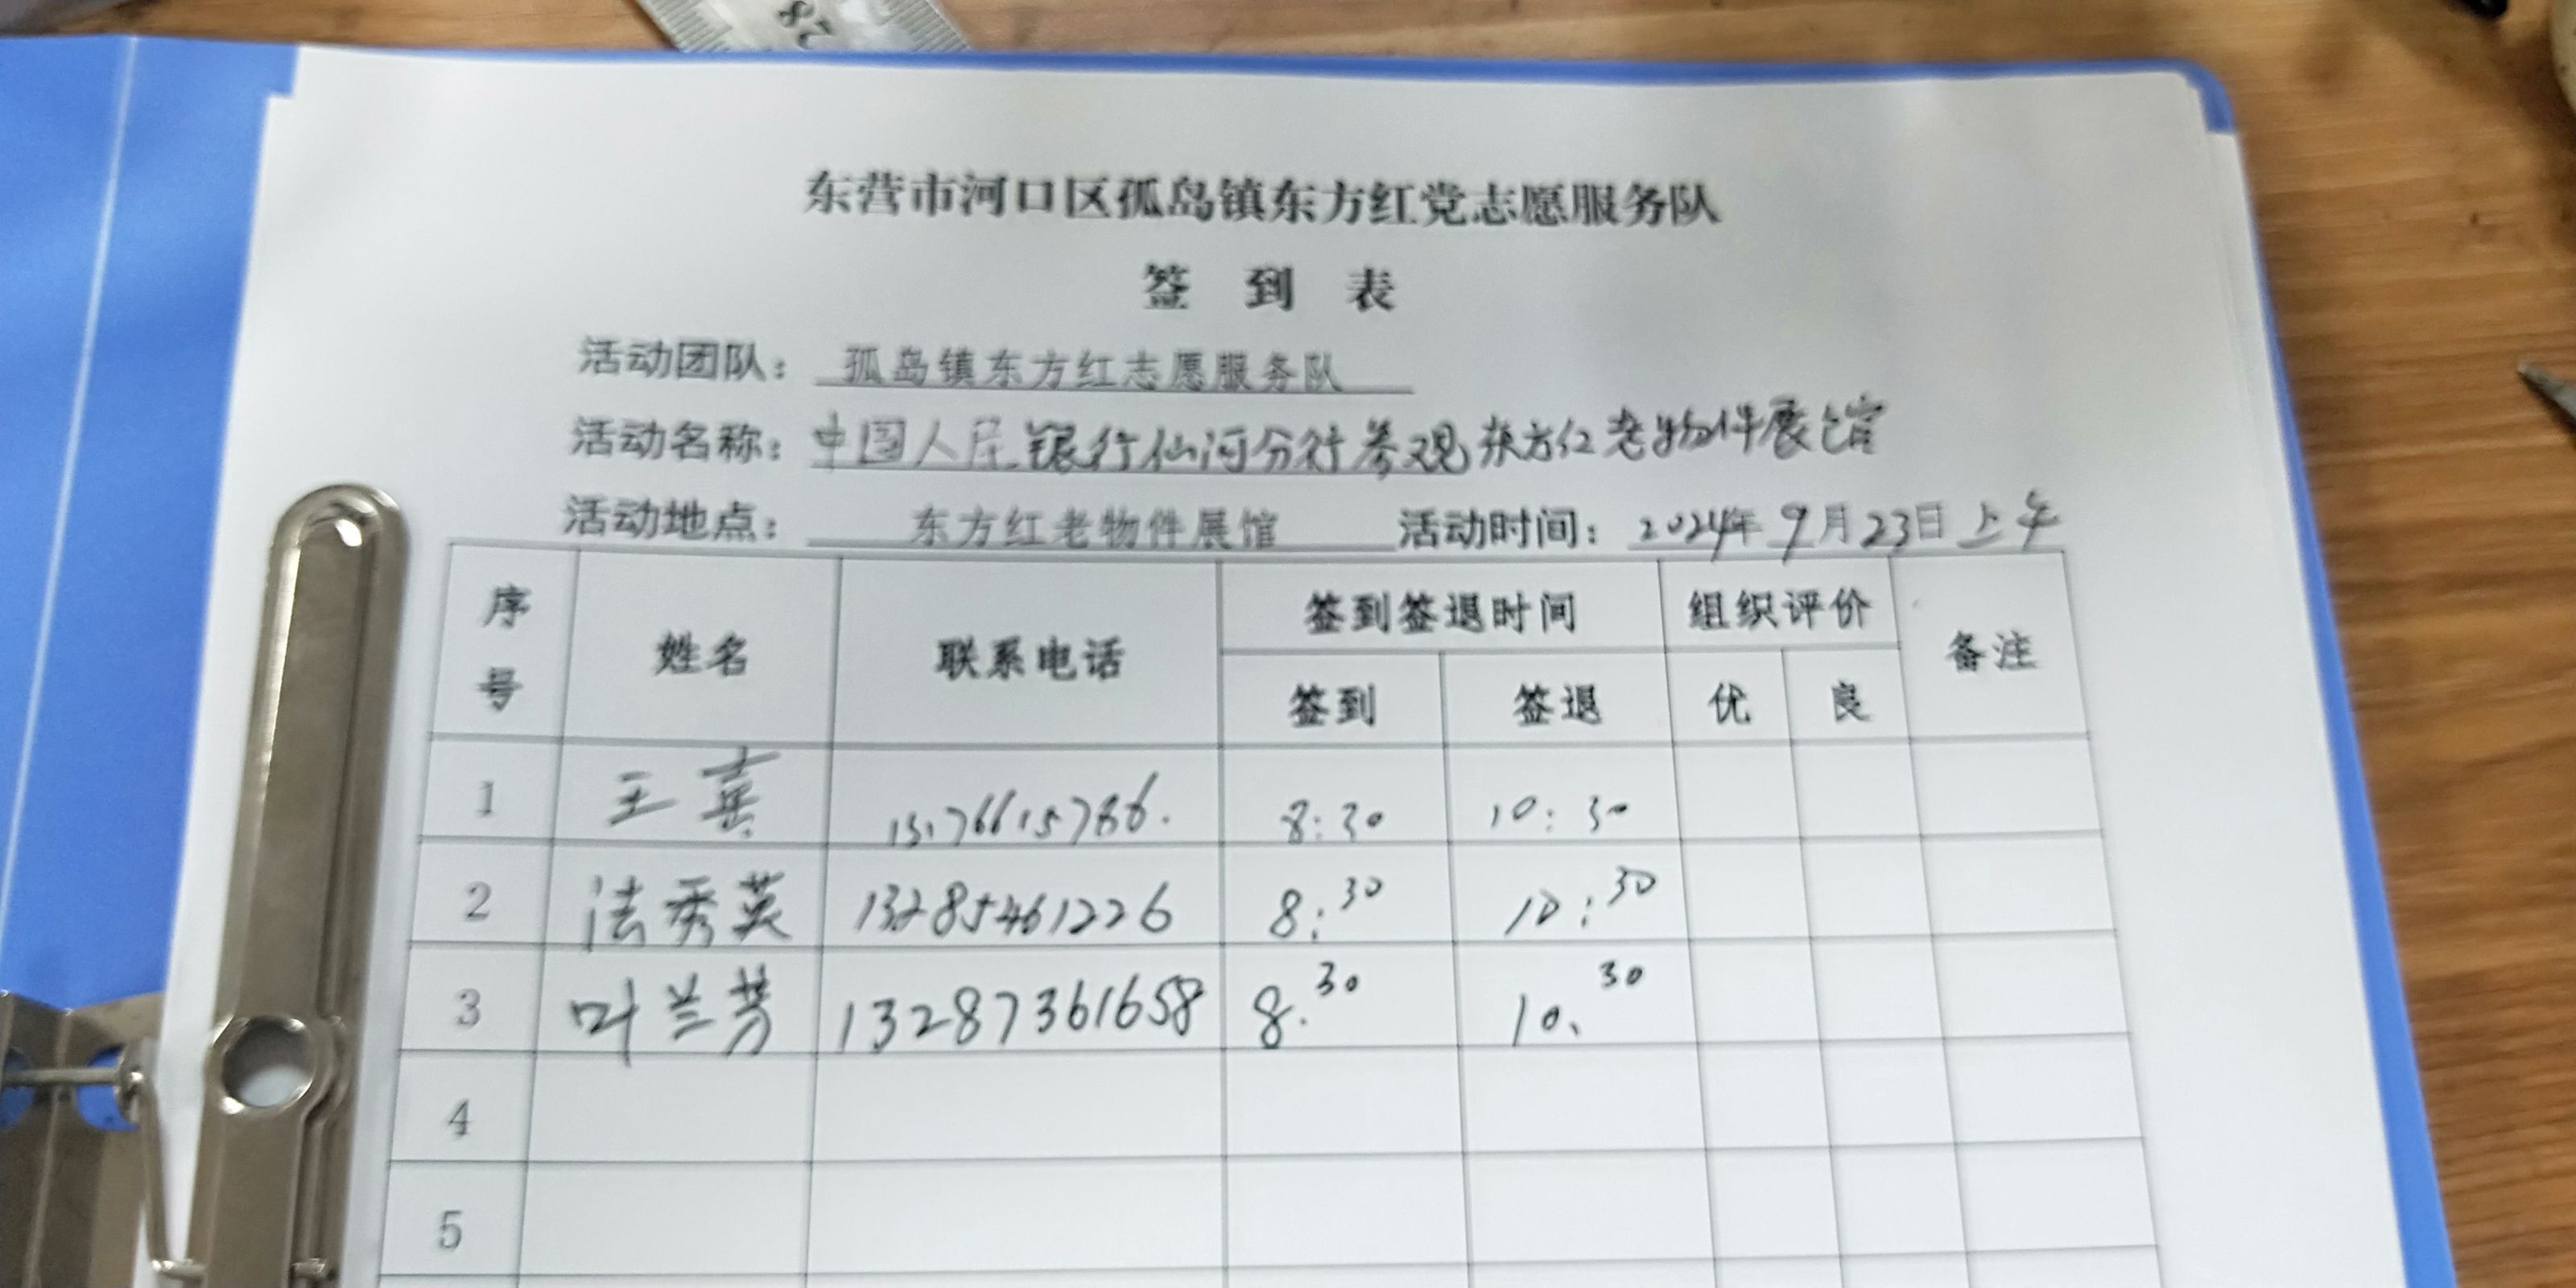 28
东营市河口区孤岛镇东方红党志愿服务队
签 到 表
活动团队： 孤岛镇东方红志愿服务队
活动名称：中国人民银行仙河分行参观东方红老物件展馆
活动地点： 东方红老物件展馆 活动时间：2024年9月23日上午
序号 姓名 联系电话 签到签退时间 组织评价 备注
签到 签退 优 良
1 王 8:30 10:30
2 法秀英 13285461226 8:30 10:30
3 叶兰芳 13287361658 8.30 10.30
4
5